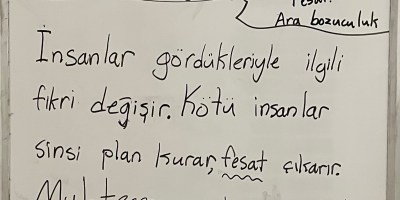 Ara bozuculuk
İnsanlar gördükleriyle ilgili
fikri değişir. Kötü insanlar
sinsi plan kurar, fesat çıkarır.